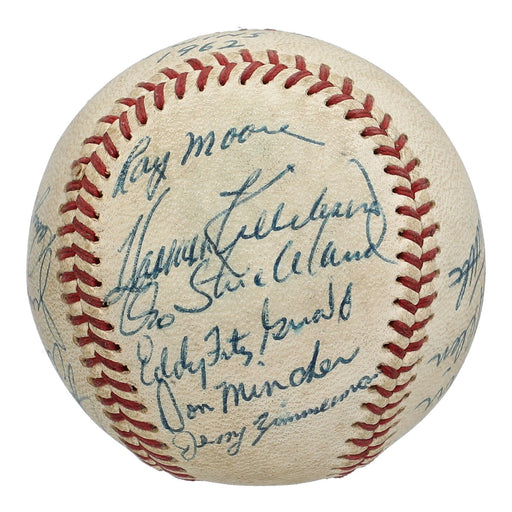 1962
Ray Moore
Harmon Killebrew
Geo Strickland
Eddy Fitz Gerald
Don Mincher
Jerry Zimmerman